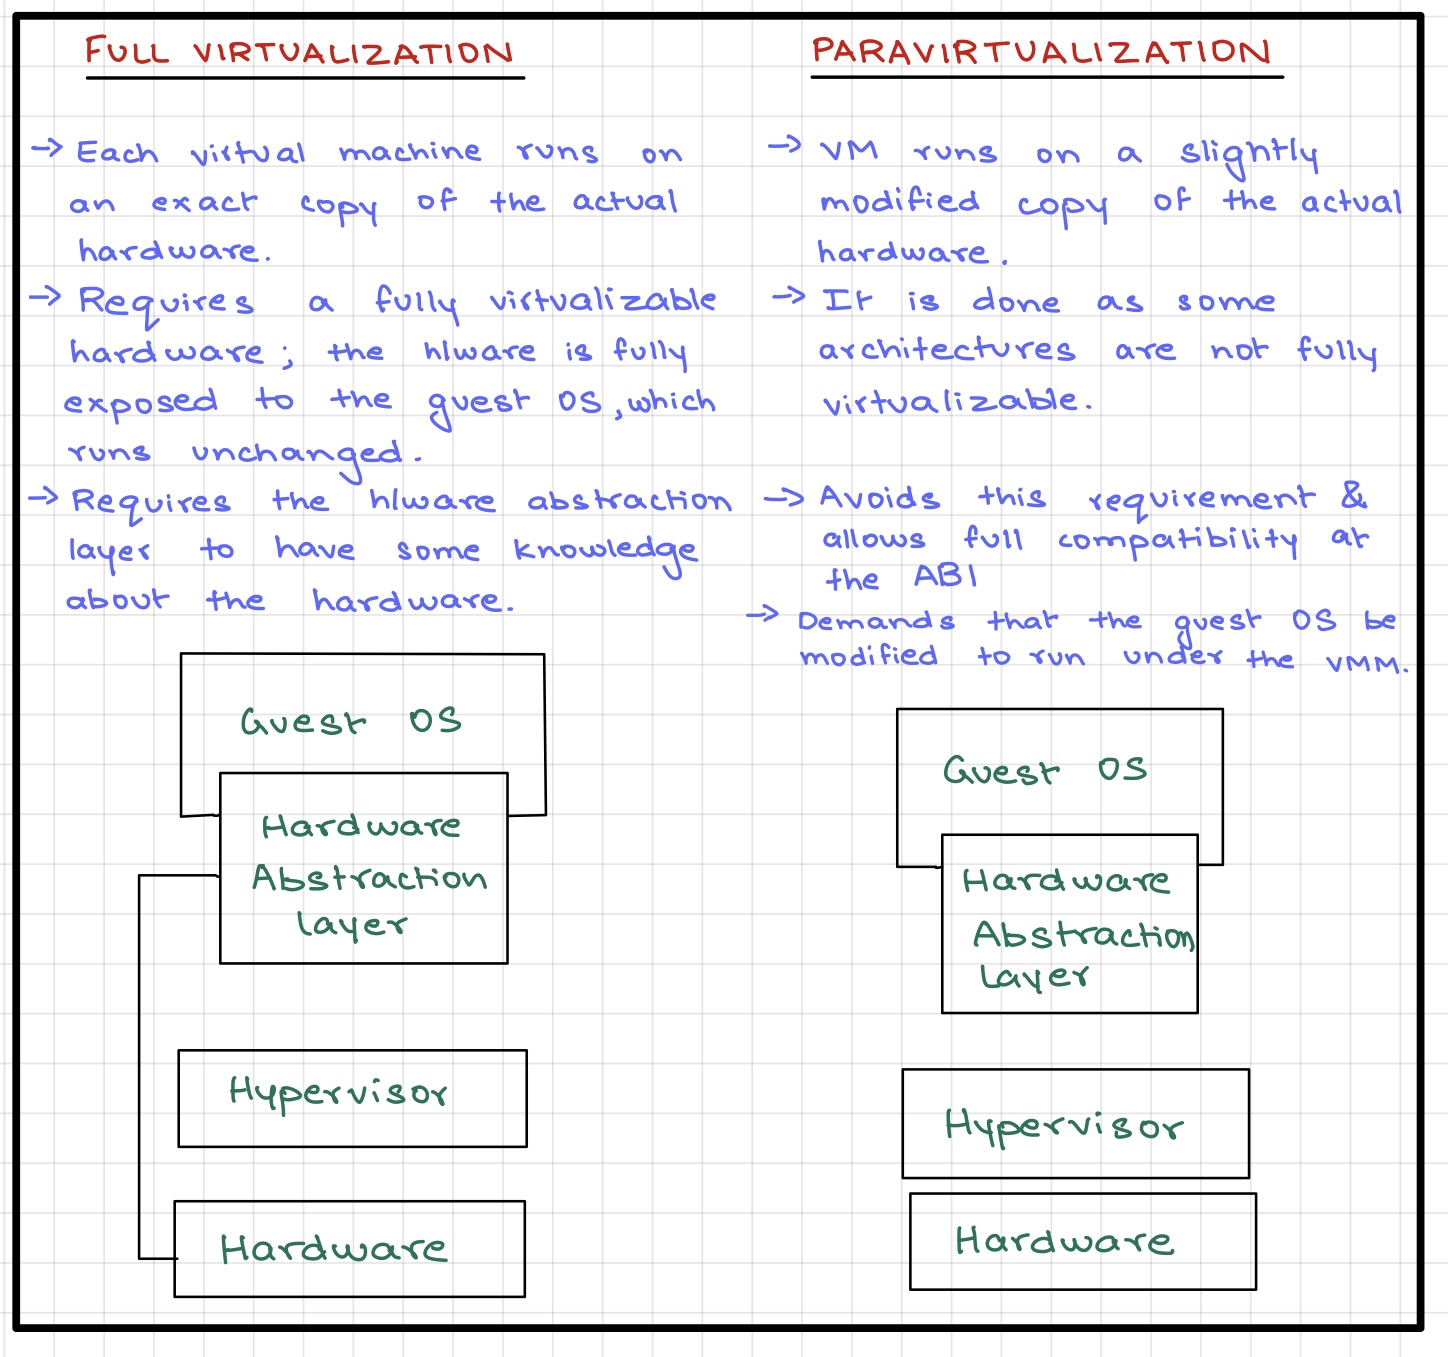 FULL VIRTUALIZATION
→ Each virtual machine runs on
an exact copy of the actual
hardware.
→ Requires a fully virtualizable
hardware; the h/ware is fully
exposed to the guest OS, which
runs unchanged.
→ Requires the h/ware abstraction
layer to have some knowledge
about the hardware.
Guest OS
Hardware
Abstraction
layer
Hypervisor
Hardware
PARAVIRTUALIZATION
→ VM runs on a slightly
modified copy of the actual
hardware.
→ It is done as some
architectures are not fully
virtualizable.
→ Avoids this requirement &
allows full compatibility at
the ABI
→ Demands that the guest OS be
modified to run under the VMM.
Guest OS
Hardware
Abstraction
Layer
Hypervisor
Hardware